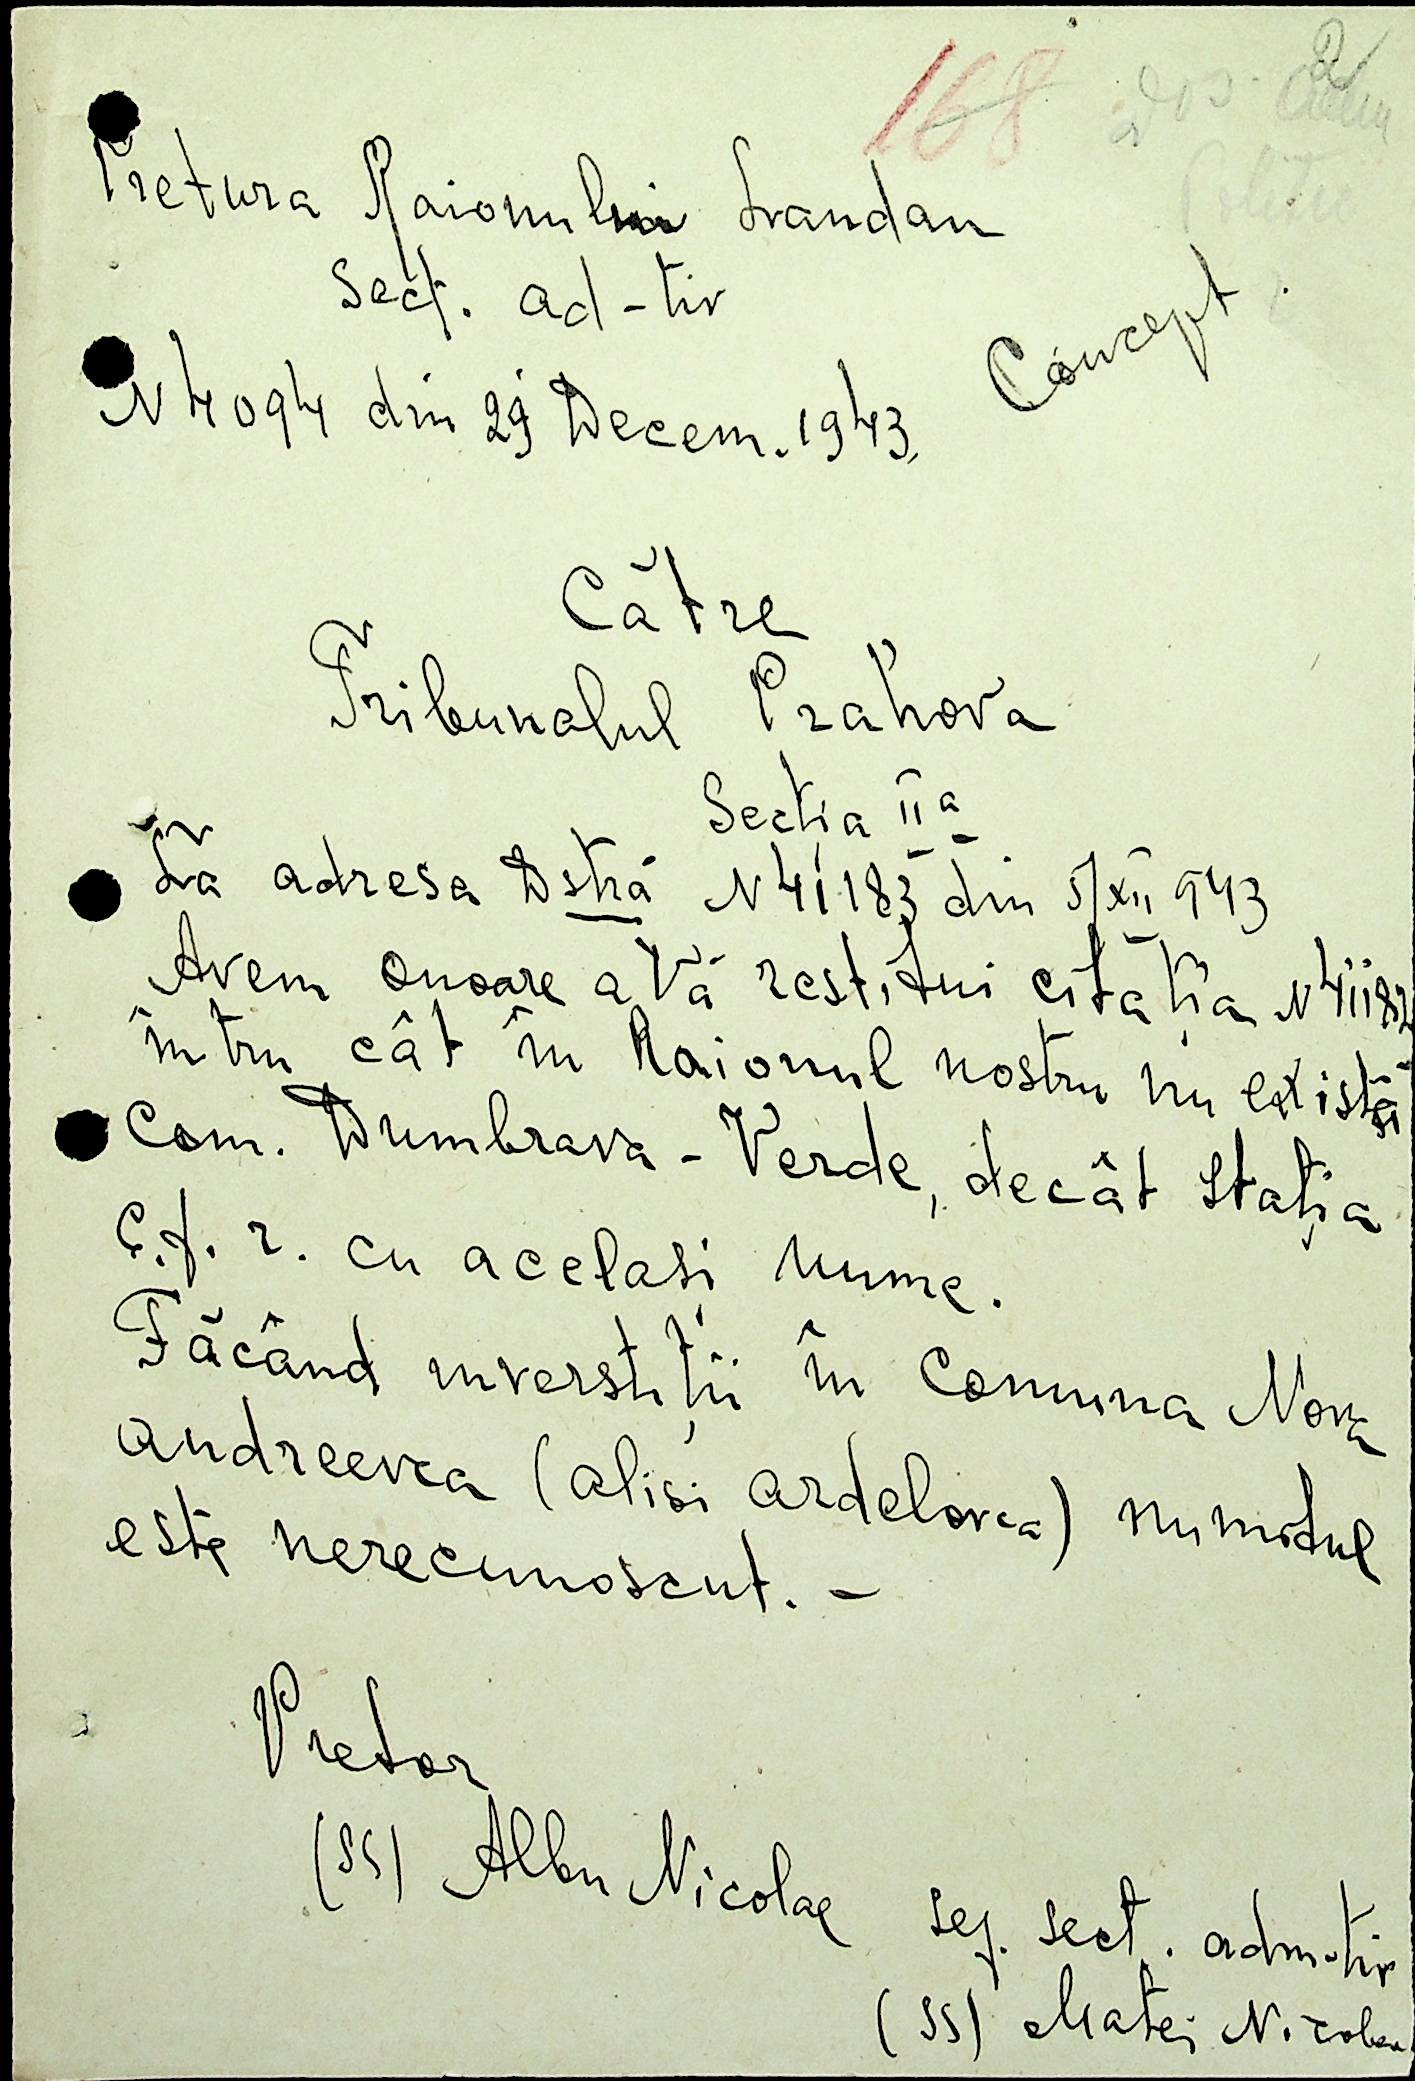 168
2
Dos.
Politic
Pretura Raionului Landau
Sect. ad-tiv
Concept
N 4094 din 29 Decem. 1943.
Către
Tribunalul Prahova
Secția II a
La adresa Dstră N 41183 din 5/XII 943
Avem onoare a Vă restitui citația N 41182
întru cât în Raionul nostru nu există
Com. Dumbrava-Verde, decât stația
C.f.r. cu același nume.
Făcând inverstiții în Comuna Nova
andreevca (alisi ardelovca) numitul
este nerecunoscut. -
Pretor
(SS) Albu Nicolae
șef. sect. adm-tiv
(SS) Matei Nicolae